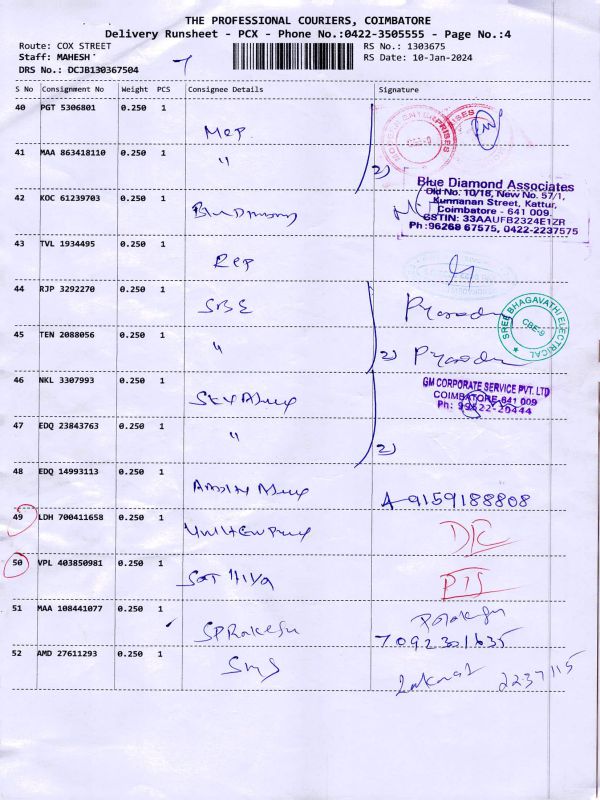 THE PROFESSIONAL COURIERS, COIMBATORE
Delivery Runsheet - PCX - Phone No.:0422-3505555 - Page No.:4
Route: COX STREET RS No.: 1303675
Staff: MAHESH RS Date: 10-Jan-2024
DRS No.: DCJB130367504
S No Consignment No Weight PCS Consignee Details Signature
40 PGT 5306801 0.250 1
MCP
41 MAA 863418110 0.250 1
" 2)
Blue Diamond Associates
Old No. 10/18, New No. 57/1,
Kunnanan Street, Kattur,
Coimbatore - 641 009.
GSTIN: 33AAUFB2324E1ZR
Ph :96268 67575, 0422-2237575
42 KOC 61239703 0.250 1
43 TVL 1934495 0.250 1
44 RJP 3292270 0.250 1
SBE
SREE BHAGAVATHI ELECTRICAL
CBE-9
45 TEN 2088056 0.250 1
" 2)
46 NKL 3307993 0.250 1
GM CORPORATE SERVICE PVT. LTD
COIMBATORE-641 009
Ph: 99522-20444
47 EDQ 23843763 0.250 1
" 2)
48 EDQ 14993113 0.250 1
A-9159188808
49 LDH 700411658 0.250 1
50 VPL 403850981 0.250 1
51 MAA 108441077 0.250 1
SPRakesh
7092301635
52 AMD 27611293 0.250 1
SMS
2237115